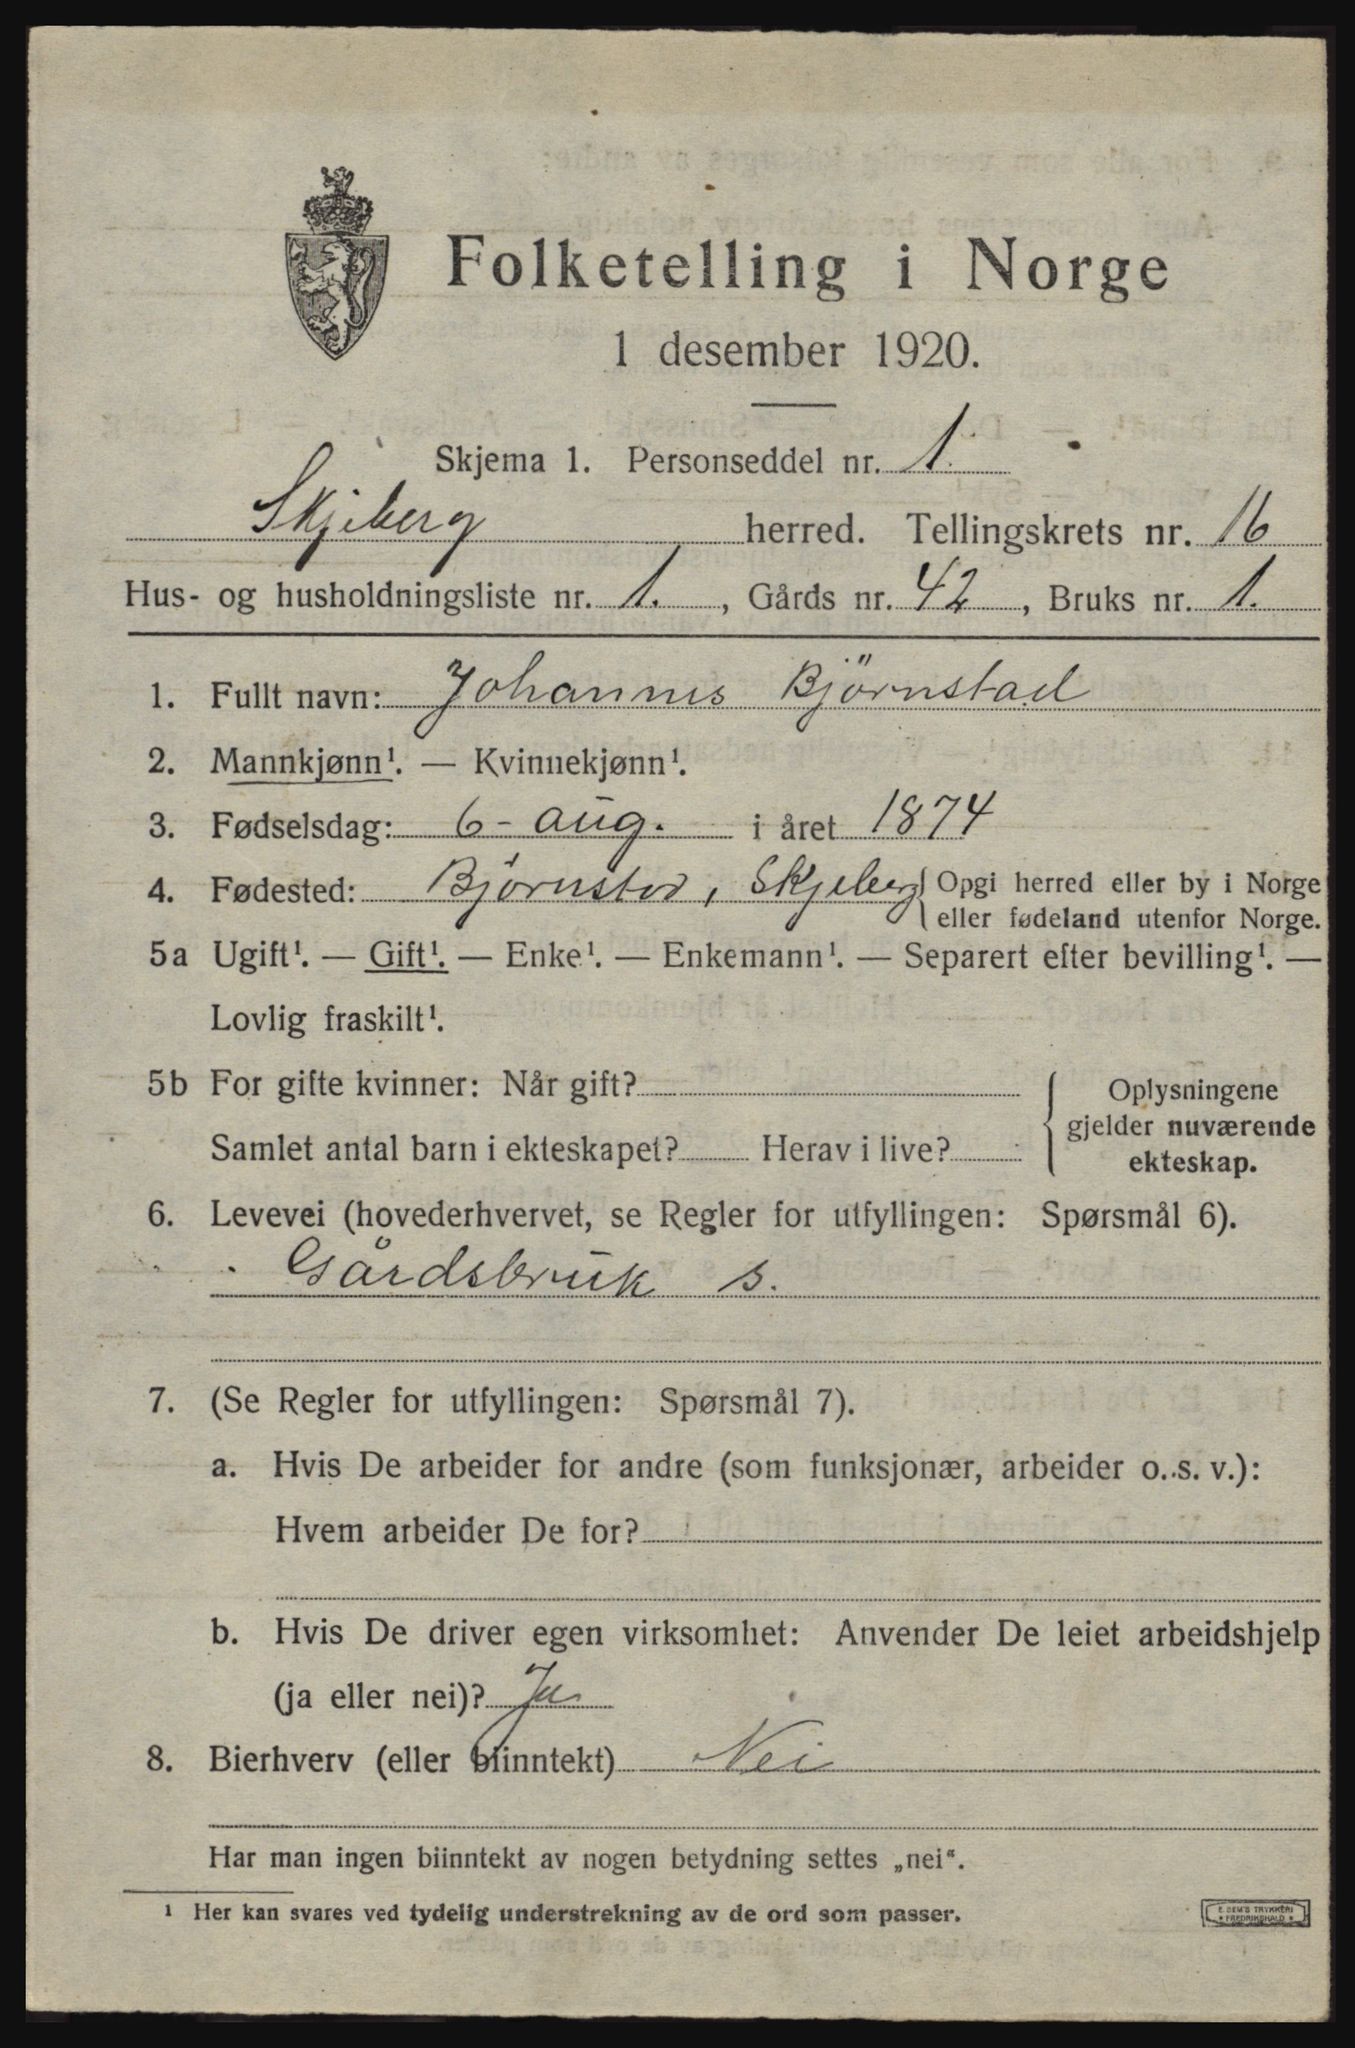 Folketelling i Norge
1 desember 1920.
Skjema 1. Personseddel nr. 1.
Skjeberg herred. Tellingskrets nr. 16
Hus- og husholdningsliste nr. 1. , Gårds nr. 42 , Bruks nr. 1.
1. Fullt navn: Johannes Björnstad
2. Mannkjønn¹. — Kvinnekjønn¹.
3. Fødselsdag: 6 - aug. i året 1874
4. Fødested: Björnstad, Skjeberg { Opgi herred eller by i Norge
eller fødeland utenfor Norge.
5a Ugift¹. — Gift¹. — Enke¹. — Enkemann¹. — Separert efter bevilling¹. —
Lovlig fraskilt¹.
5b For gifte kvinner: Når gift?
Samlet antal barn i ekteskapet? Herav i live?
{ Oplysningene
gjelder nuværende
ekteskap.
6. Levevei (hovederhvervet, se Regler for utfyllingen: Spørsmål 6).
Gårdsbruk s.
7. (Se Regler for utfyllingen: Spørsmål 7).
a. Hvis De arbeider for andre (som funksjonær, arbeider o. s. v.):
Hvem arbeider De for?
b. Hvis De driver egen virksomhet: Anvender De leiet arbeidshjelp
(ja eller nei)? Ja
8. Bierhverv (eller biinntekt) Nei
Har man ingen biinntekt av nogen betydning settes „nei“.
¹ Her kan svares ved tydelig understrekning av de ord som passer.
E. SEM'S TRYKKERI
* FREDRIKSHALD *